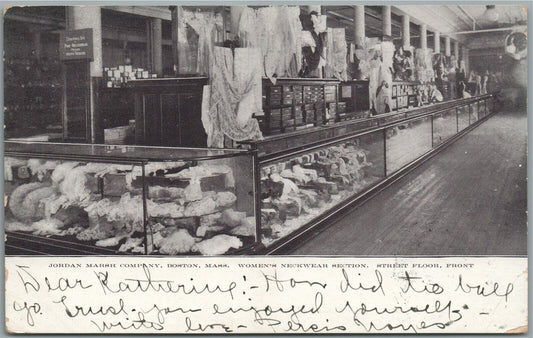 JORDAN MARSH COMPANY, BOSTON, MASS. WOMEN'S NECKWEAR SECTION. STREET FLOOR, FRONT
Dear Katherine! - How did the ball
go. Trust you enjoyed yourself -
write - Persis Noyes